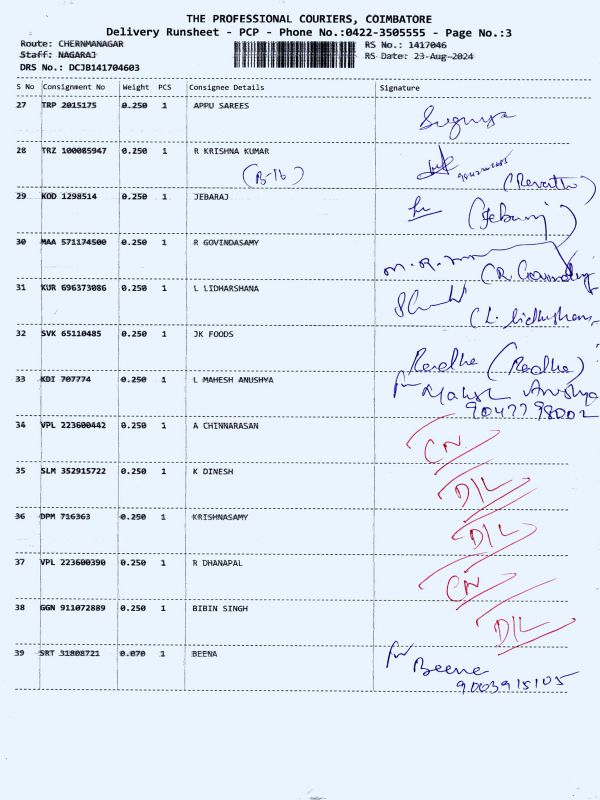 THE PROFESSIONAL COURIERS, COIMBATORE
Delivery Runsheet - PCP - Phone No.:0422-3505555 - Page No.:3
Route: CHERNMANAGAR RS No.: 1417046
Staff: NAGARAJ RS Date: 23-Aug-2024
DRS No.: DCJB141704603
S No Consignment No Weight PCS Consignee Details Signature
27 TRP 2015175 0.250 1 APPU SAREES
28 TRZ 100085947 0.250 1 R KRISHNA KUMAR
(B-16) (Revathi)
29 KOD 1298514 0.250 1 JEBARAJ (Jebaraj)
30 MAA 571174500 0.250 1 R GOVINDASAMY
31 KUR 696373086 0.250 1 L LIDHARSHANA
32 SVK 65110485 0.250 1 JK FOODS
Radha (Radha)
33 KDI 707774 0.250 1 L MAHESH ANUSHYA
Mahesh Anushya
9047798002
34 VPL 223600442 0.250 1 A CHINNARASAN
CN
35 SLM 352915722 0.250 1 K DINESH
D/L
36 DPM 716363 0.250 1 KRISHNASAMY
D/L
37 VPL 223600390 0.250 1 R DHANAPAL
CN
38 GGN 911072889 0.250 1 BIBIN SINGH
D/L
39 SRT 31808721 0.070 1 BEENA
Beena
9003915105